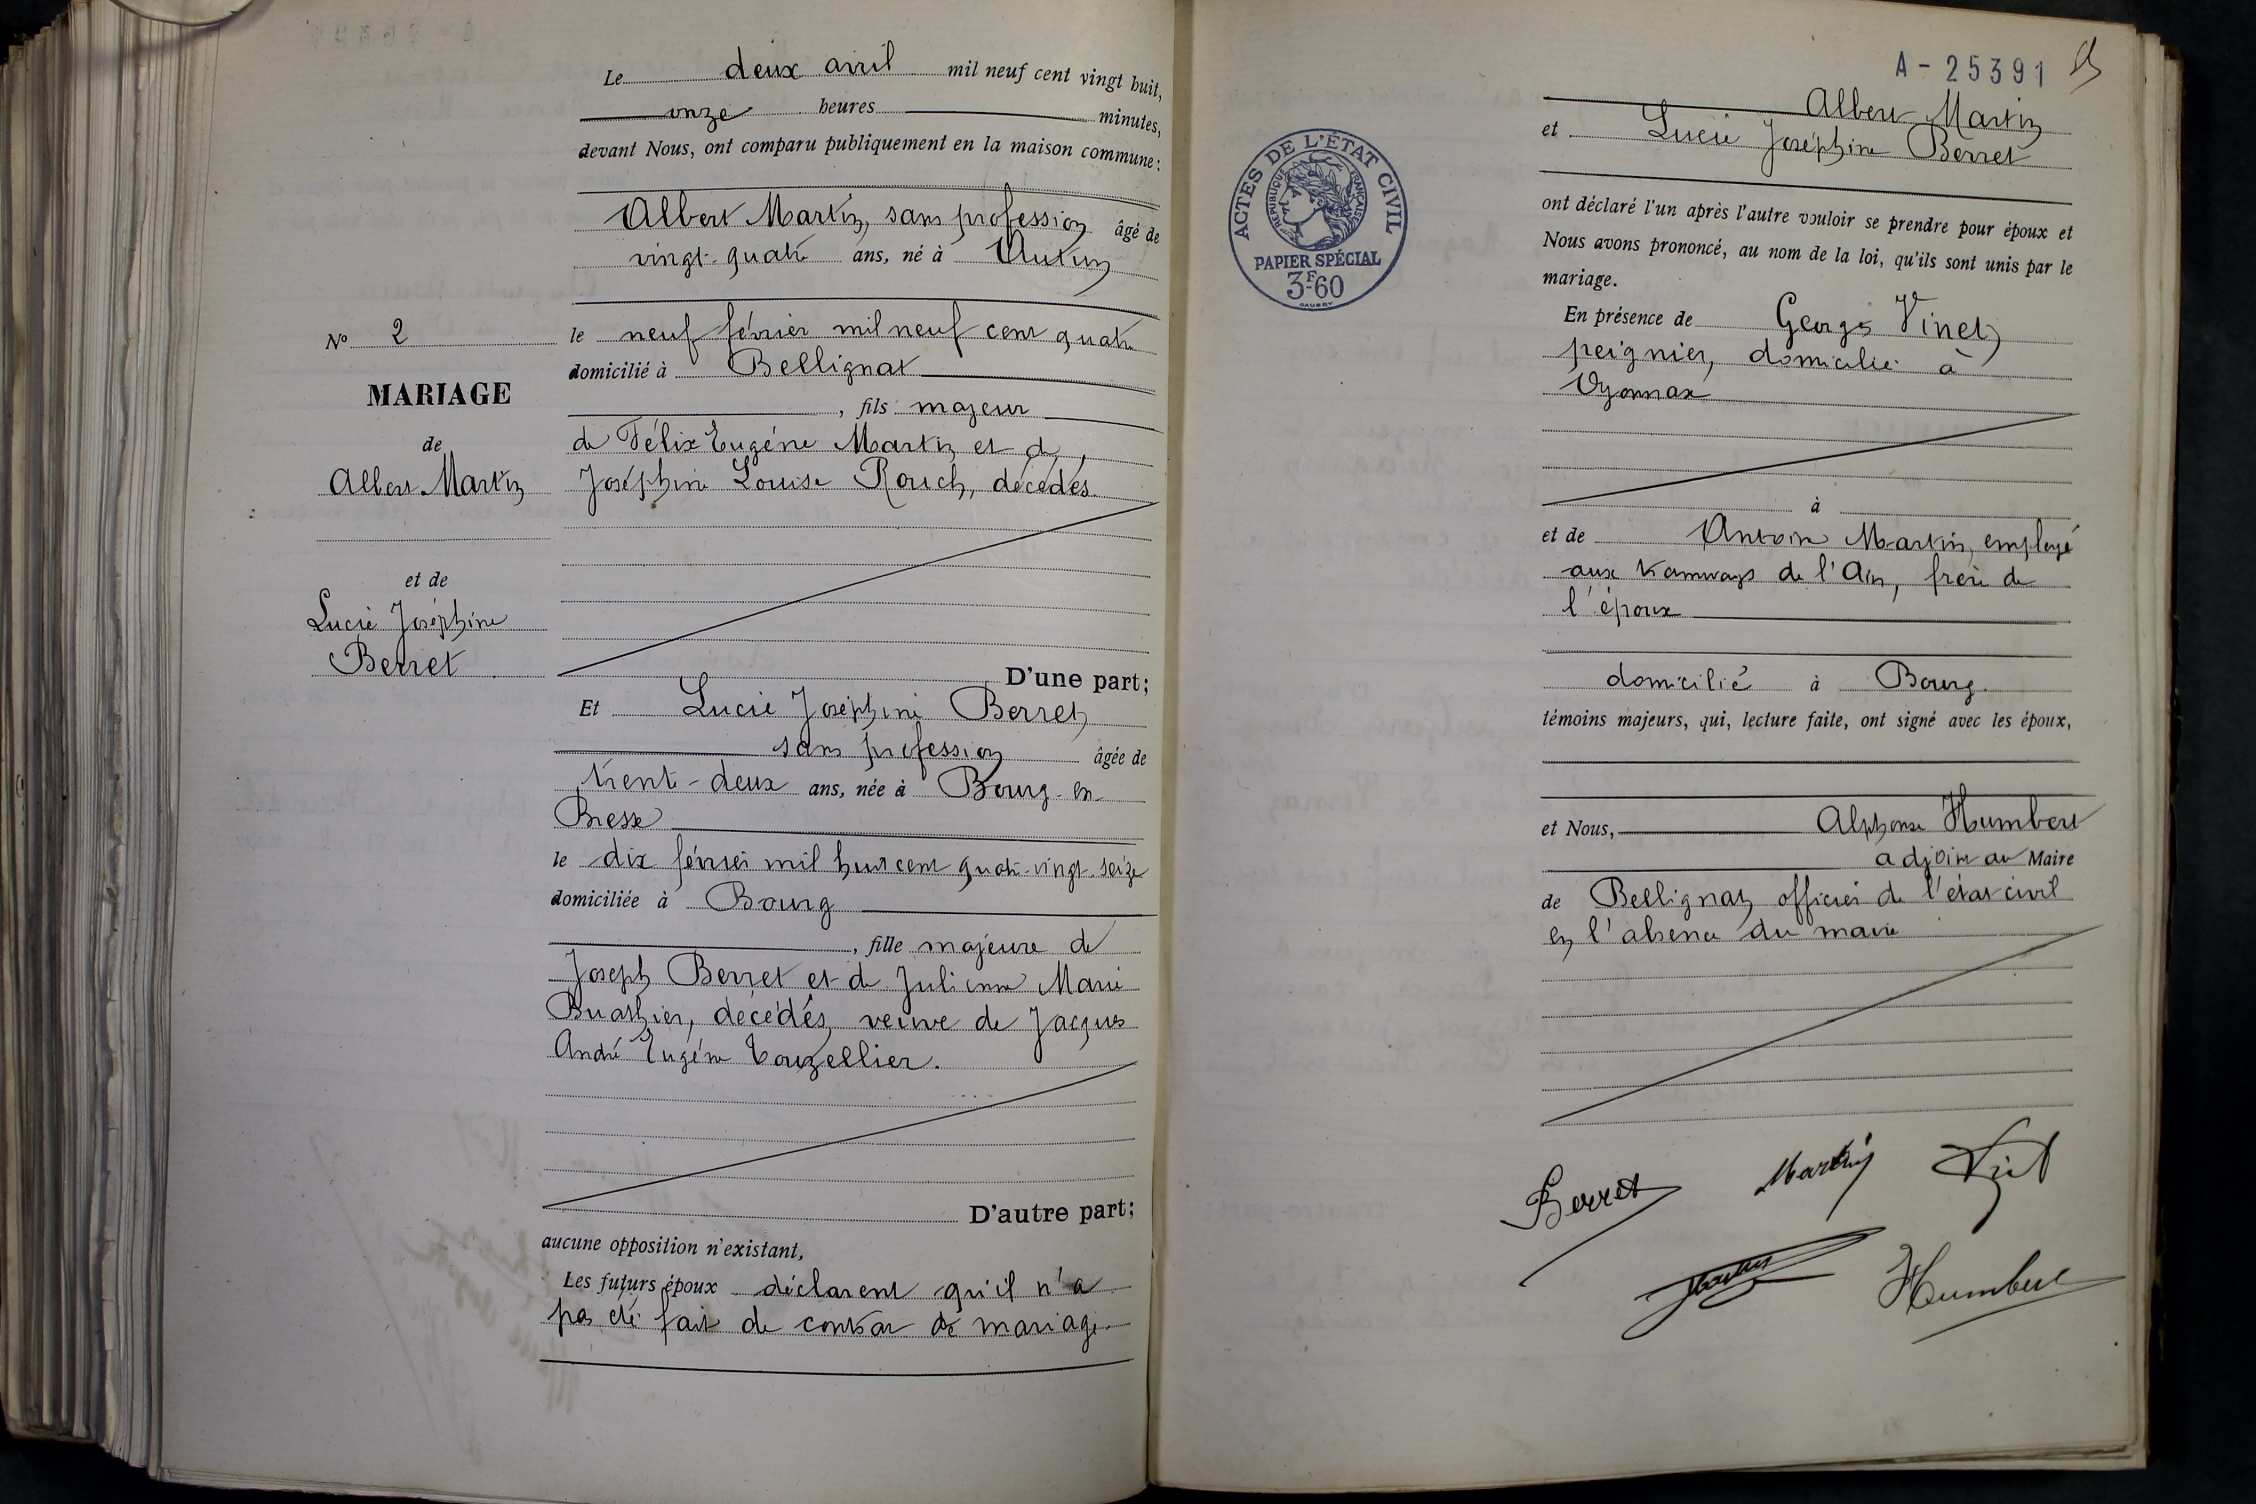 Le deux avril mil neuf cent vingt huit,
onze heures minutes,
devant Nous, ont comparu publiquement en la maison commune :
Albert Martin, sans profession âgé de
vingt-quatre ans, né à Autun
le neuf février mil neuf cent quatre
domicilié à Bellignat
, fils majeur
de Félix Eugène Martin et de
Joséphine Louise Rouch, décédés
D'une part;
Et Lucie Joséphine Berret
sans profession âgée de
trente-deux ans, née à Bourg-en-
Bresse
le dix février mil huit cent quatre-vingt-seize
domiciliée à Bourg
, fille majeure de
Joseph Berret et de Julienne Marie
Buathier, décédés, veuve de Jacques
André Eugène Touzellier.
D'autre part;
aucune opposition n'existant,
Les futurs époux déclarent qu'il n'a
pas été fait de contrat de mariage.
No 2
MARIAGE
de
Albert Martin
et de
Lucie Joséphine
Berret
A-25391
Albert Martin
et Lucie Joséphine Berret
ont déclaré l'un après l'autre vouloir se prendre pour époux et
Nous avons prononcé, au nom de la loi, qu'ils sont unis par le
mariage.
En présence de Georges Vinet,
peignier, domicilié à
Oyonnax
à
et de Antoine Martin, employé
aux tramways de l'Ain, frère de
l'époux
domicilié à Bourg
témoins majeurs, qui, lecture faite, ont signé avec les époux,
et Nous, Alphonse Humbert
adjoint au Maire
de Bellignat, officier de l'état-civil
en l'absence du maire
Berret Martin
Humbert
ACTES DE L'ÉTAT CIVIL
RÉPUBLIQUE FRANÇAISE
PAPIER SPÉCIAL
3F.60